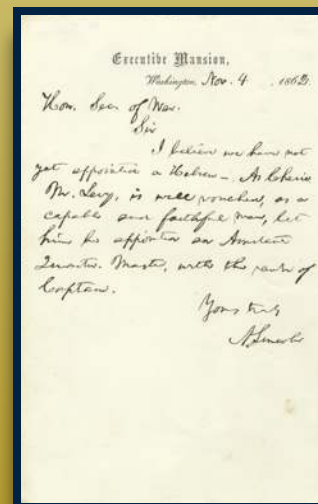 Executive Mansion,
Washington, Nov. 4, 1862.
Hon. Sec. of War.
Sir
I believe we have not
yet appointed a Hebrew— As Cherie
M. Levy, is well vouched, as a
capable and faithful man, let
him be appointed an Assistant
Quarter-Master, with the rank of
Captain.
Yours truly
A. Lincoln